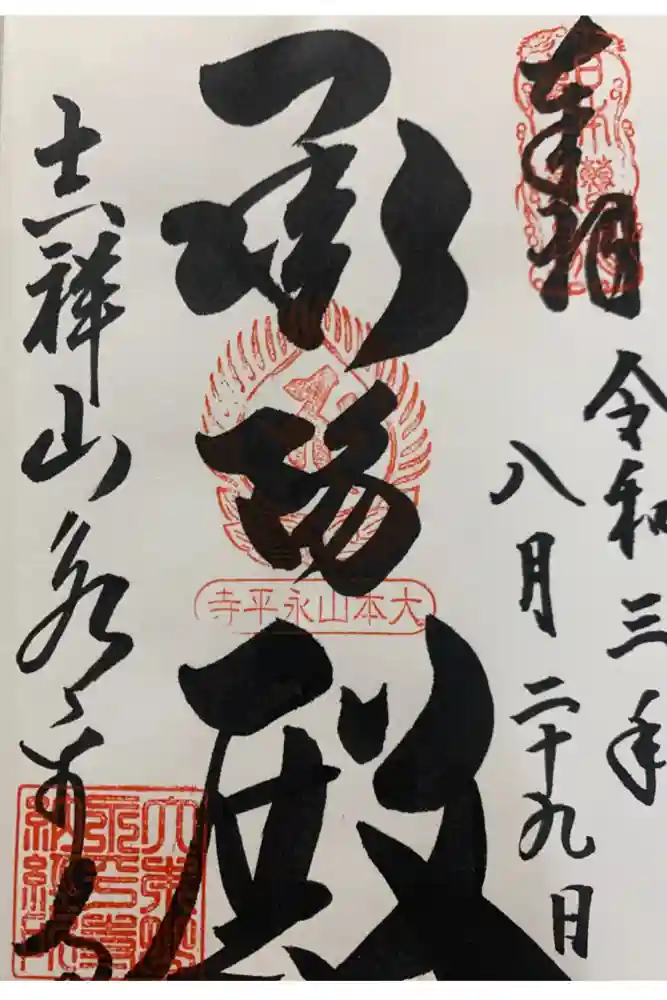 奉拝
令和三年
八月二十九日
承陽殿
大本山永平寺
吉祥山永平寺